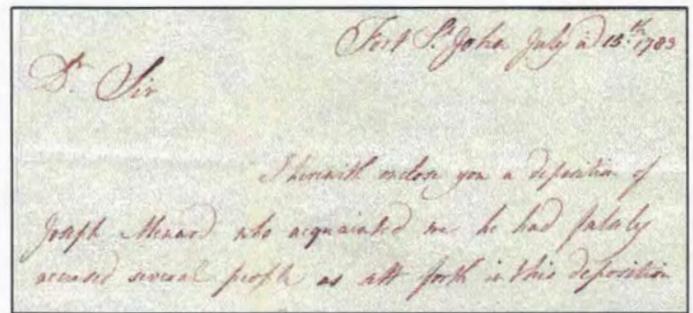 Fort St. John July 15th 1783
Dr. Sir
I herewith inclose you a deposition of
Joseph Menard who acquainted me he had falsely
accused several people as sett forth in this deposition